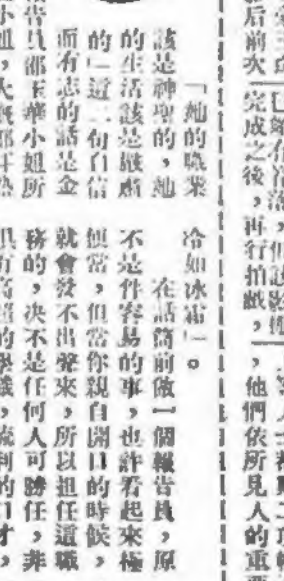 后前次
完成之後，再行拍戲，
他們依所見人的重要
「她的職業
該是神聖的，她
的生活該是嚴肅
的」這一句自信
而有志的話是金
報告員鄒玉華小姐所
小姐，大概都
冷如冰霜」。
在話筒前做一個報告員，原
不是件容易的事，也許看起來極
便當，但當你親自開口的時候，
就會發不出聲來，所以担任這職
務的，决不是任何人可勝任，非
具有高深的學識，流利的口才，